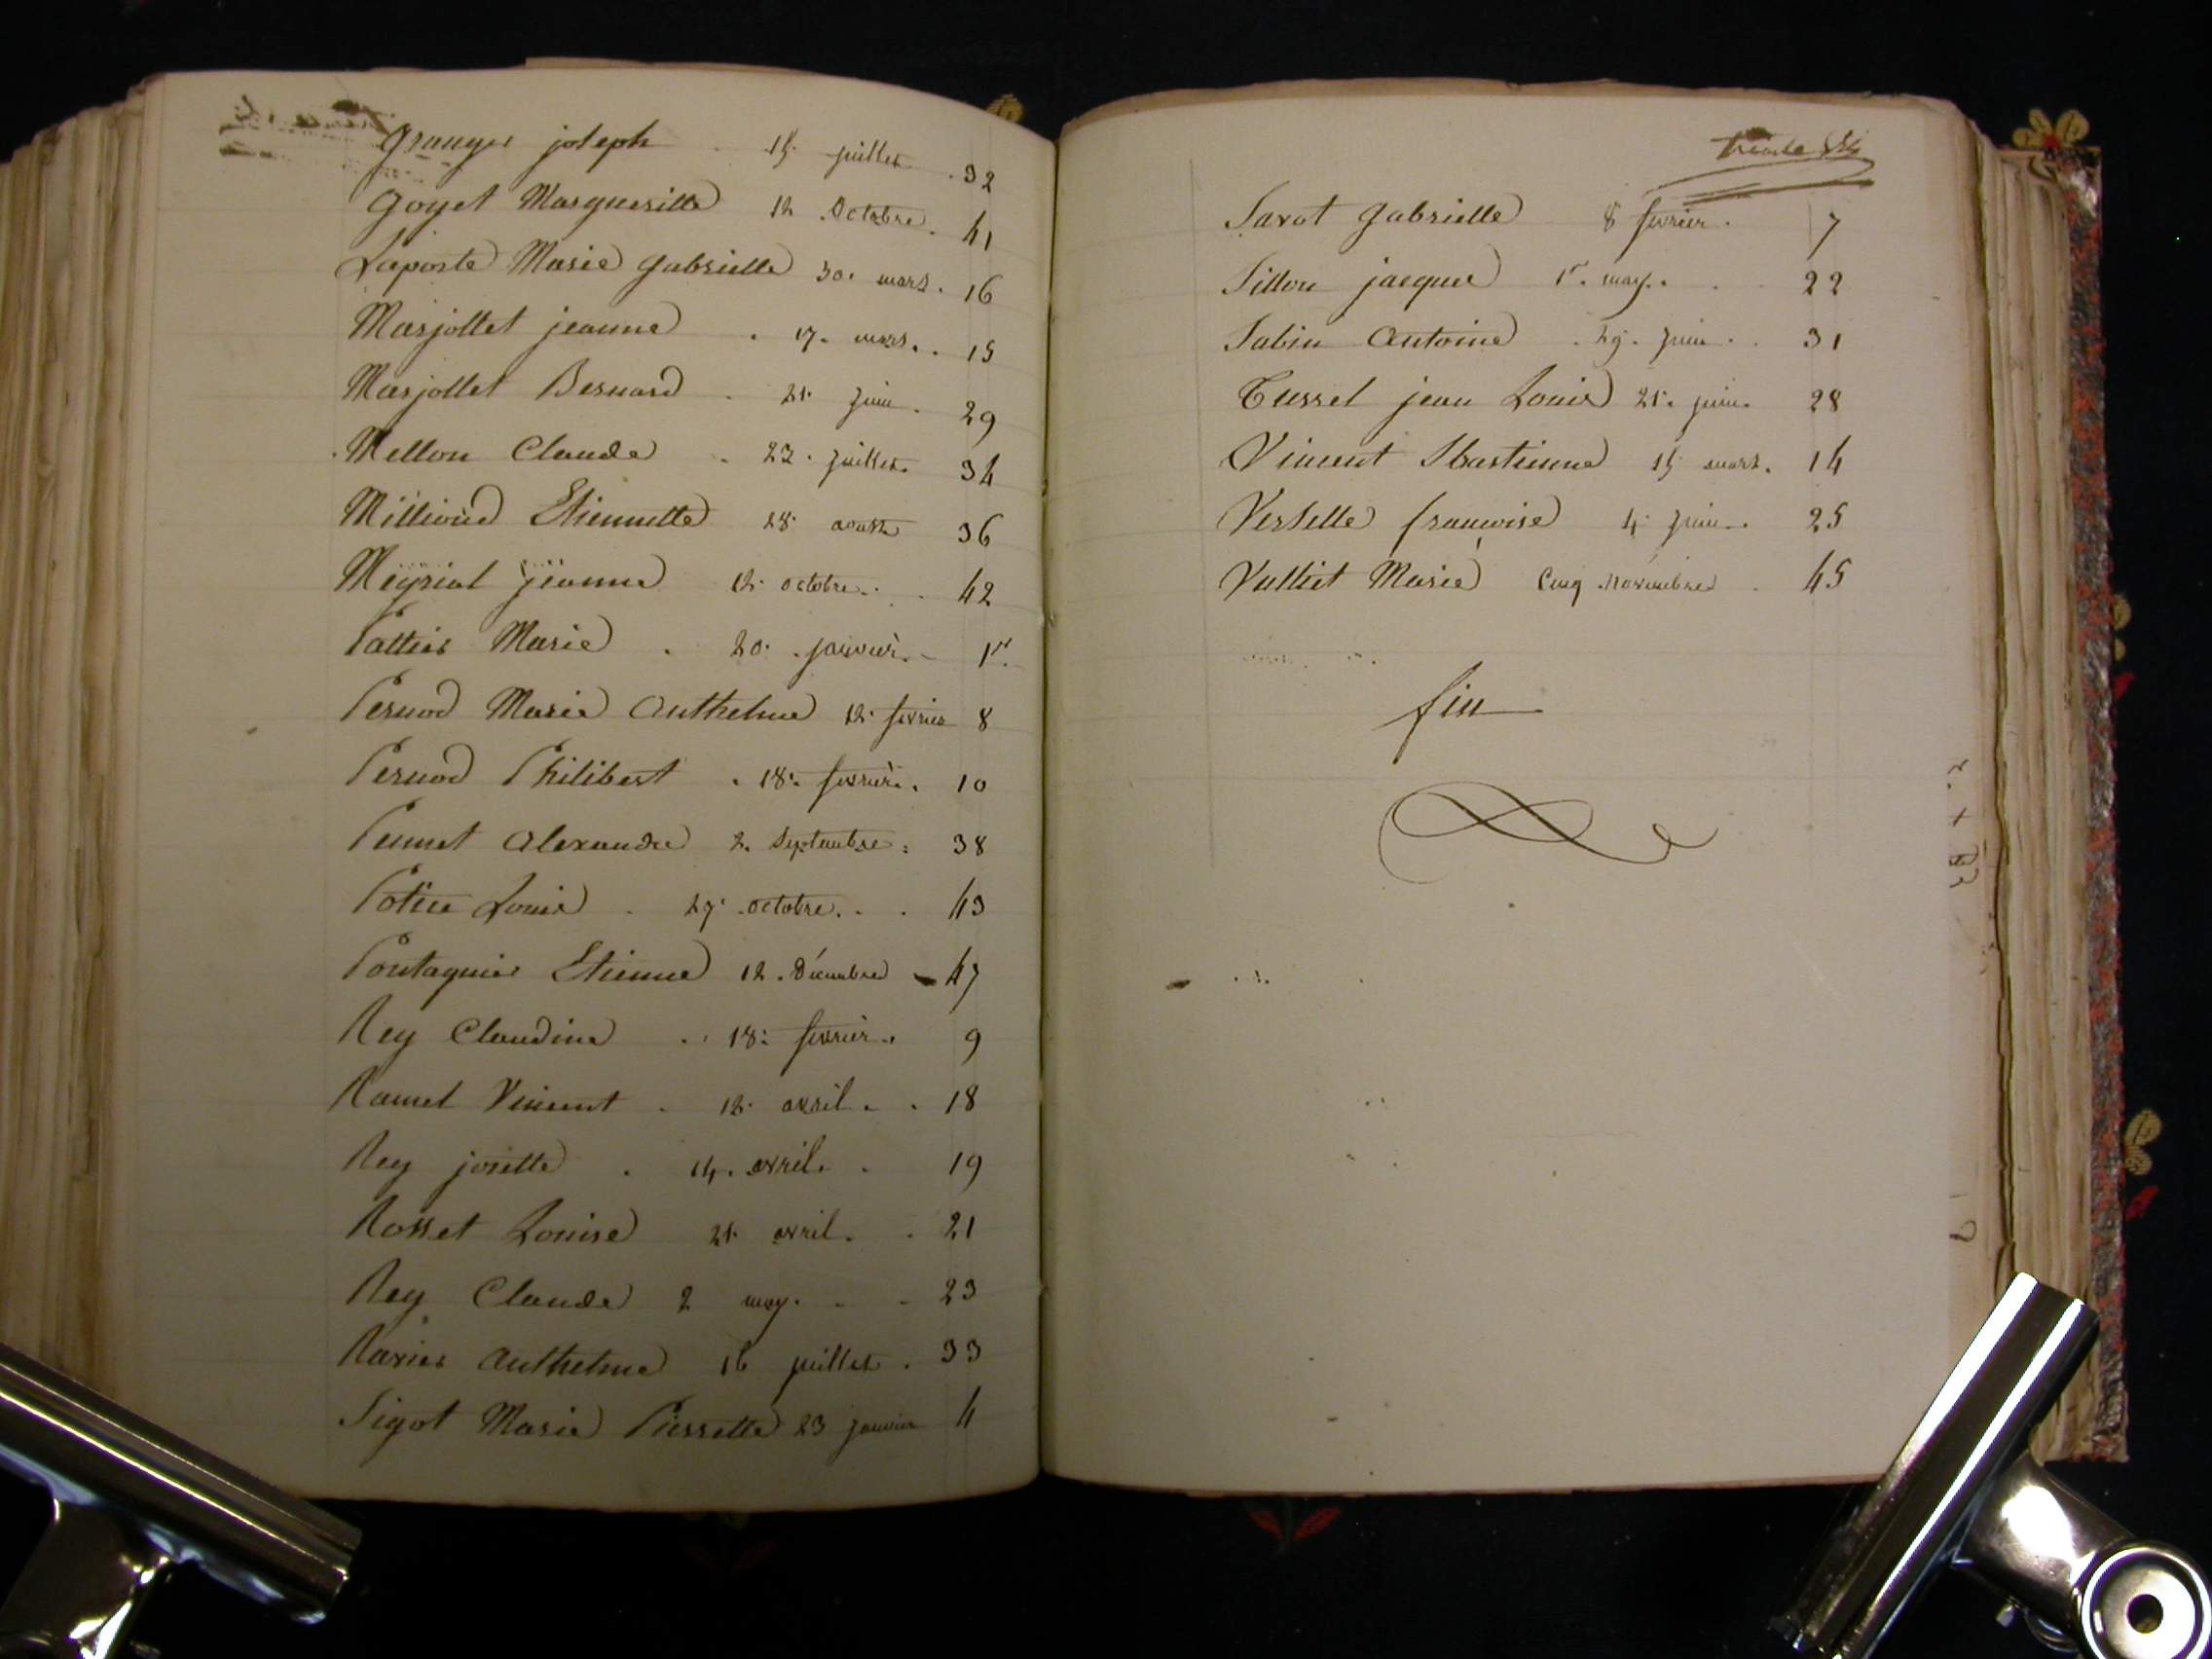 Granger joseph . 15. juillet . 32
Goyet Margueritte 12 Octobre. 41
Laposte Marie gabrielle 30. mars. 16
Marjollet jeanne . 17. mars. . 15
Marjollet Bernard . 21. juin . 29
Mellon Claude . 22. juillet. 34
Millioud Etiennette 28. aoust 36
Meyriat jeanne 12. octobre. . 42
Pattier Marie . 20. janvier. - 1er.
Pernod Marie Anthelme 12. fevrier 8
Pernod Philibert . 18. fevrier. . 10
Pennet Alexandre 2. Septembre. 38
Louis . 27. octobre. . . 43
Portaquier Etienne 12. Décembre - 47
Rey Claudine . . 18. fevrier. . 9
Ramel Vincent . 12. avril. . 18
Rey josette . 14. avril. . 19
Rosset Louise 21. avril. . 21
Rey Claude 2 may. - - 23
Ravier Anthelme 16 juillet . 33
Sigot Marie Pierrette 23 janvier 4
trente
Savot gabrielle 8 fevrier. 7
Sillon jacques 1er. may. . . 22
Sabin Antoine . 29. juin . . 31
Tussel jean Louis 21. juin. 28
Vincent Sbastienne 15 mars. 14
francoise 4. juin. 25
Vulliet Marie Cinq Novembre . 45
fin